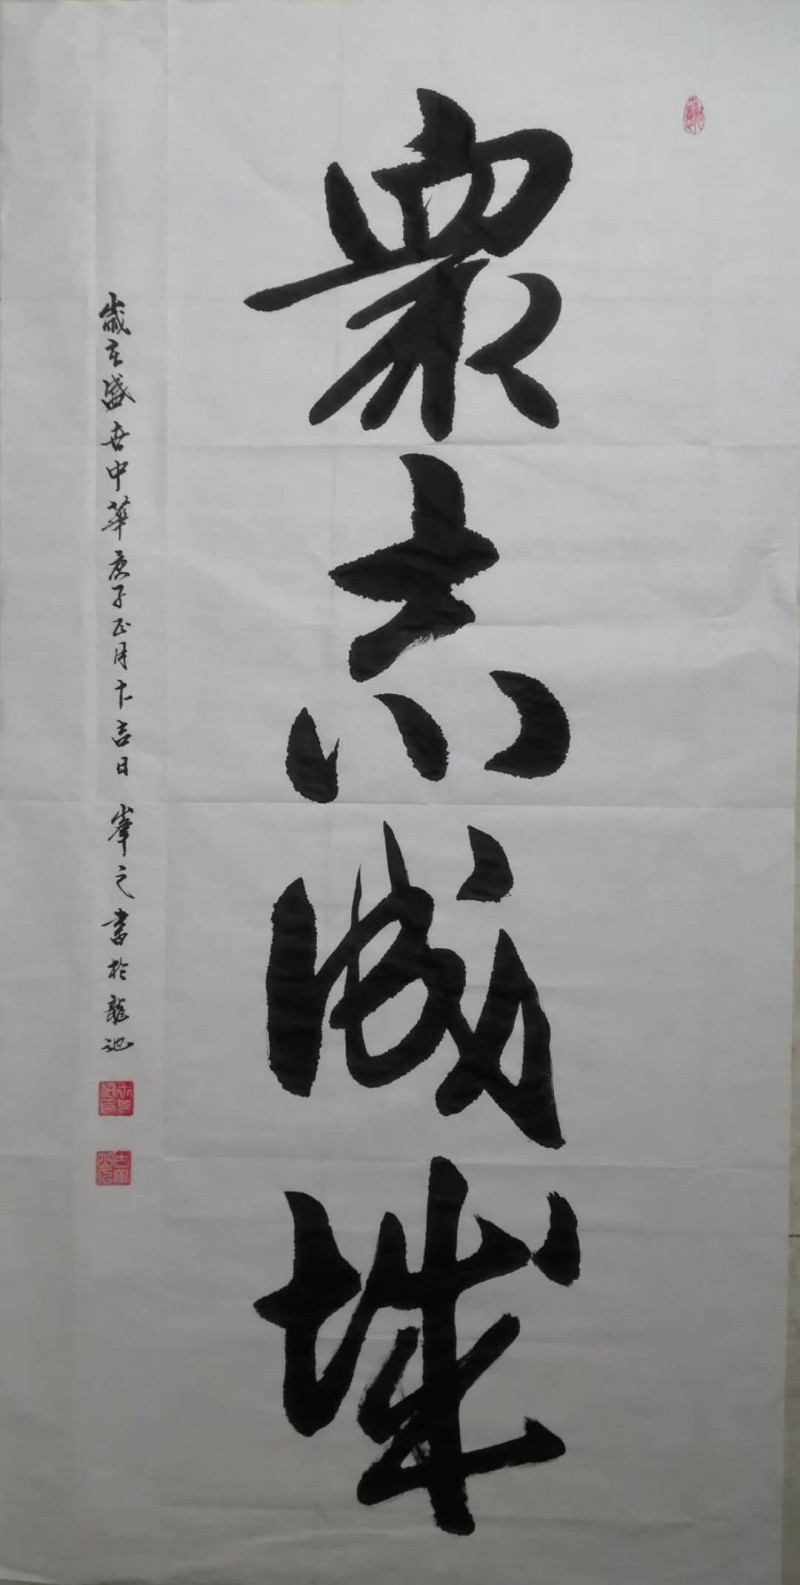 眾志成城
歲在盛世中華庚子正月十吉日 峯之書於龍池